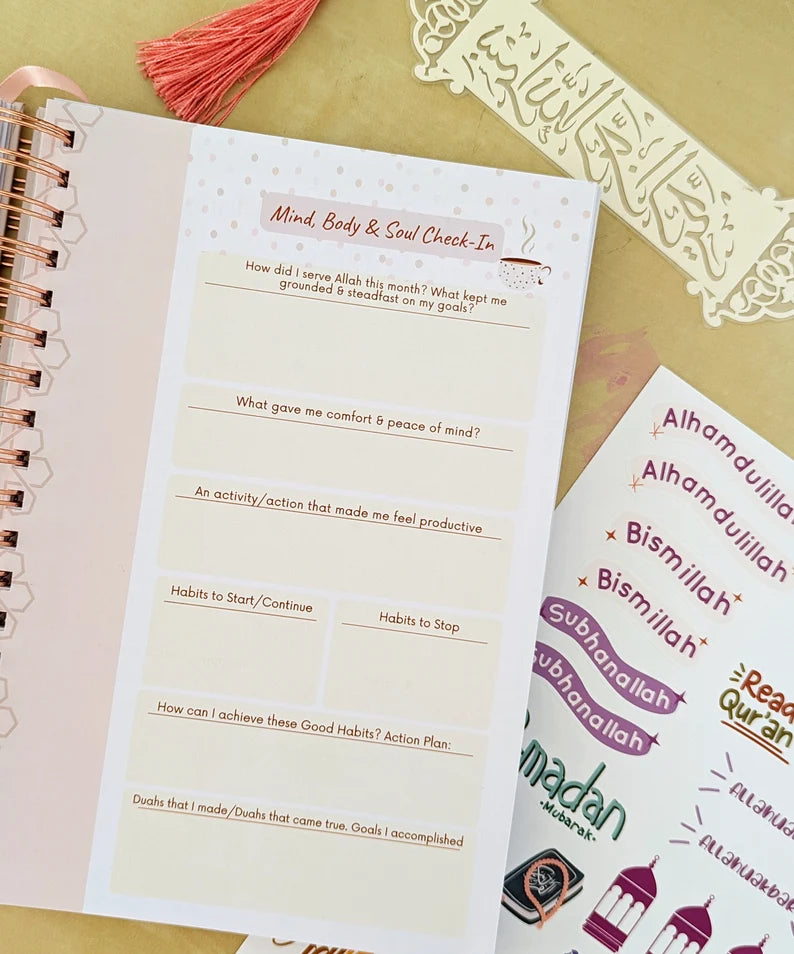 Mind, Body & Soul Check-In
How did I serve Allah this month? What kept me
grounded & steadfast on my goals?
What gave me comfort & peace of mind?
An activity/action that made me feel productive
Habits to Start/Continue
Habits to Stop
How can I achieve these Good Habits? Action Plan:
Duahs that I made/Duahs that came true. Goals I accomplished
Alhamdulillah
Alhamdulillah
Bismillah
Bismillah
Subhanallah
Subhanallah
Read
Qur'an
madan
·Mubarak·
Allahua
Allahuakba